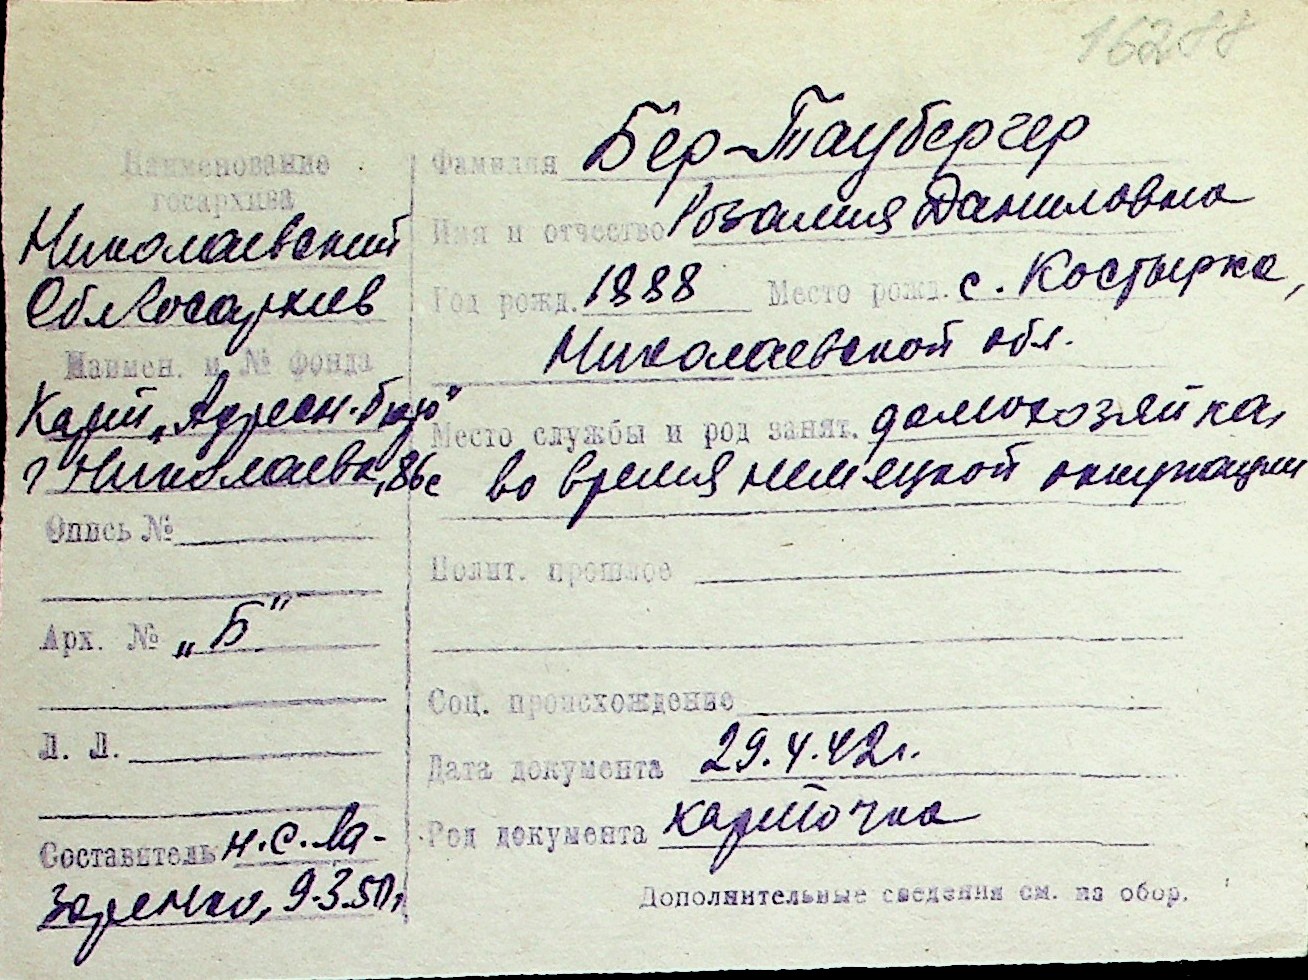 16288
Наименование
госархива
Николаевский
Облгосархив
Наимен. и № фонда
Карт. „Адресн. бюро"
г. Николаева, 86с
Опись №
Арх. № „Б"
Л. Л.
Составитель Н.С. Ла-
заренко, 9.3.50г.
Фамилия Бер-Таубергер
Имя и отчество Розалия Даниловна
Год рожд. 1888 Место рожд. с. Костырка,
Николаевской обл.
Место службы и род занят. домохозяйка,
во время немецкой оккупации
Полит. прошлое
Соц. происхождение
Дата документа 29.4.42г.
Род документа карточка
Дополнительные сведения см. на обор.